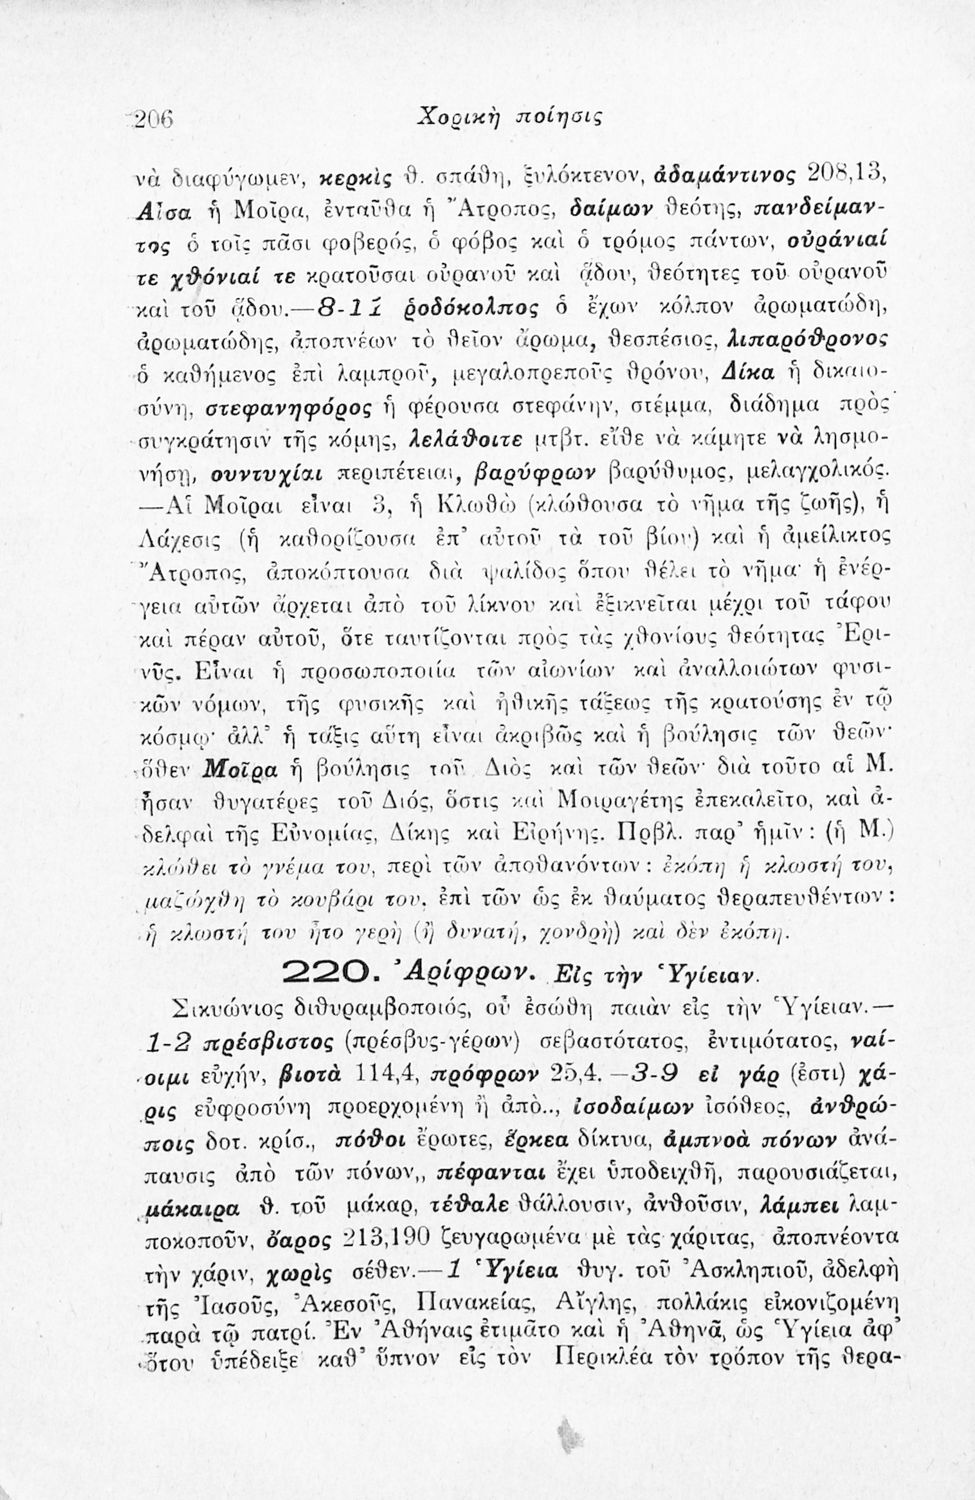 206 Χορικὴ ποίησις
νὰ διαφύγωμεν, κερκὶς θ. σπάθη, ξυλόκτενον, ἀδαμάντινος 208,13,
Αἶσα ἡ Μοῖρα, ἐνταῦθα ἡ Ἄτροπος, δαίμων θεότης, πανδείμαν-
τος ὁ τοῖς πᾶσι φοβερός, ὁ φόβος καὶ ὁ τρόμος πάντων, οὐράνιαί
τε χθόνιαί τε κρατοῦσαι οὐρανοῦ καὶ ᾅδου, θεότητες τοῦ οὐρανοῦ
καὶ τοῦ ᾅδου.—8-11 ῥοδόκολπος ὁ ἔχων κόλπον ἀρωματώδη,
ἀρωματώδης, ἀποπνέων τὸ θεῖον ἄρωμα, θεσπέσιος, λιπαρόθρονος
ὁ καθήμενος ἐπὶ λαμπροῦ, μεγαλοπρεποῦς θρόνου, Δίκα ἡ δικαιο-
σύνη, στεφανηφόρος ἡ φέρουσα στεφάνην, στέμμα, διάδημα πρὸς
συγκράτησιν τῆς κόμης, λελάθοιτε μτβτ. εἴθε νὰ κάμητε νὰ λησμο-
νήσῃ, συντυχίαι περιπέτειαι, βαρύφρων βαρύθυμος, μελαγχολικός.
—Αἱ Μοῖραι εἶναι 3, ἡ Κλωθὼ (κλώθουσα τὸ νῆμα τῆς ζωῆς), ἡ
Λάχεσις (ἡ καθορίζουσα ἐπ᾽ αὐτοῦ τὰ τοῦ βίου) καὶ ἡ ἀμείλικτος
Ἄτροπος, ἀποκόπτουσα διὰ ψαλίδος ὅπου θέλει τὸ νῆμα· ἡ ἐνέρ-
γεια αὐτῶν ἄρχεται ἀπὸ τοῦ λίκνου καὶ ἐξικνεῖται μέχρι τοῦ τάφου
καὶ πέραν αὐτοῦ, ὅτε ταυτίζονται πρὸς τὰς χθονίους θεότητας Ἐρι-
νῦς. Εἶναι ἡ προσωποποιία τῶν αἰωνίων καὶ ἀναλλοιώτων φυσι-
κῶν νόμων, τῆς φυσικῆς καὶ ἠθικῆς τάξεως τῆς κρατούσης ἐν τῷ
κόσμῳ· ἀλλ᾽ ἡ τάξις αὕτη εἶναι ἀκριβῶς καὶ ἡ βούλησις τῶν θεῶν·
ὅθεν Μοῖρα ἡ βούλησις τοῦ Διὸς καὶ τῶν θεῶν· διὰ τοῦτο αἱ Μ.
ἦσαν θυγατέρες τοῦ Διός, ὅστις καὶ Μοιραγέτης ἐπεκαλεῖτο, καὶ ἀ-
δελφαὶ τῆς Εὐνομίας, Δίκης καὶ Εἰρήνης. Πρβλ. παρ᾽ ἡμῖν : (ἡ Μ.)
κλώθει τὸ γνέμα του, περὶ τῶν ἀποθανόντων : ἐκόπη ἡ κλωστή του,
μαζώχθη τὸ κουβάρι του, ἐπὶ τῶν ὡς ἐκ θαύματος θεραπευθέντων :
ἡ κλωστή του ἦτο γερὴ (ἢ δυνατή, χονδρὴ) καὶ δὲν ἐκόπη.
220. Ἀρίφρων. Εἰς τὴν Ὑγίειαν.
Σικυώνιος διθυραμβοποιός, οὗ ἐσώθη παιὰν εἰς τὴν Ὑγίειαν.—
1-2 πρέσβιστος (πρέσβυς-γέρων) σεβαστότατος, ἐντιμότατος, ναί-
οιμι εὐχήν, βιοτὰ 114,4, πρόφρων 25,4. —3-9 εἰ γάρ (ἐστι) χά-
ρις εὐφροσύνη προερχομένη ἢ ἀπὸ.., ἰσοδαίμων ἰσόθεος, ἀνθρώ-
ποις δοτ. κρίσ., πόθοι ἔρωτες, ἕρκεα δίκτυα, ἀμπνοὰ πόνων ἀνά-
παυσις ἀπὸ τῶν πόνων,, πέφανται ἔχει ὑποδειχθῆ, παρουσιάζεται,
μάκαιρα θ. τοῦ μάκαρ, τέθαλε θάλλουσιν, ἀνθοῦσιν, λάμπει λαμ-
ποκοποῦν, ὄαρος 213,190 ζευγαρωμένα μὲ τὰς χάριτας, ἀποπνέοντα
τὴν χάριν, χωρὶς σέθεν.—1 Ὑγίεια θυγ. τοῦ Ἀσκληπιοῦ, ἀδελφὴ
τῆς Ἰασοῦς, Ἀκεσοῦς, Πανακείας, Αἴγλης, πολλάκις εἰκονιζομένη
παρὰ τῷ πατρί. Ἐν Ἀθήναις ἐτιμᾶτο καὶ ἡ Ἀθηνᾶ, ὡς Ὑγίεια ἀφ᾽
ὅτου ὑπέδειξε καθ᾽ ὕπνον εἰς τὸν Περικλέα τὸν τρόπον τῆς θερα-